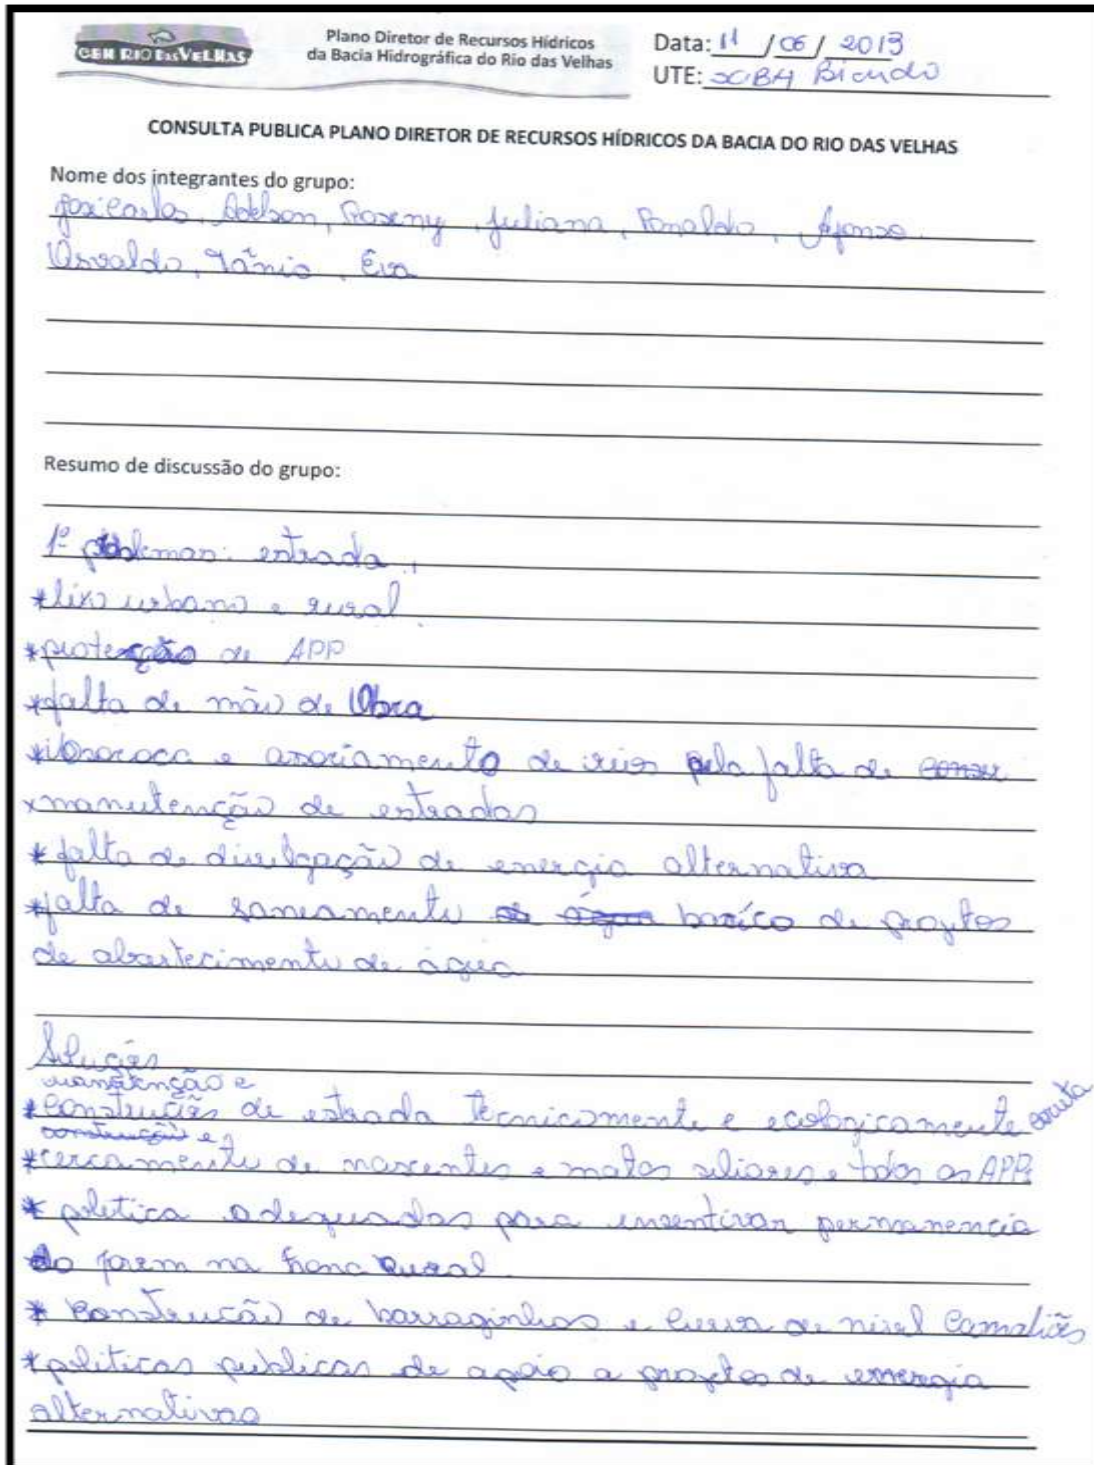 CBH RIO DAS VELHAS
Plano Diretor de Recursos Hídricos
da Bacia Hidrográfica do Rio das Velhas
Data: 11 / 06 / 2013
UTE: SCBH Bicudo
CONSULTA PUBLICA PLANO DIRETOR DE RECURSOS HÍDRICOS DA BACIA DO RIO DAS VELHAS
Nome dos integrantes do grupo:
José Carlos, Adelson, Roseny, Juliana, Ronaldo, Afonso
Osvaldo, Tânia, Eva
Resumo de discussão do grupo:
1º problemas: estrada,
*lixo urbano e rural
*proteção de APP
*falta de mão de Obra
*vosoroca e assoriamento de rios pela falta de
*manutenção de estradas
* falta de divulgação de energia alternativa
*falta de saneamento basíco de projetos
de abastecimento de água
Soluções
manutenção e
*construções de estrada tecnicamente e ecologicamente correta
construção e
*cercamento de nascentes e matas siliares e todos as APPs
* politica adequadas para insentivar permanencia
do jovem na zona Rural
* construção de barraginhas e curva de nivel Camaliões
*politicas publicas de apoio a projetos de energia
alternativas